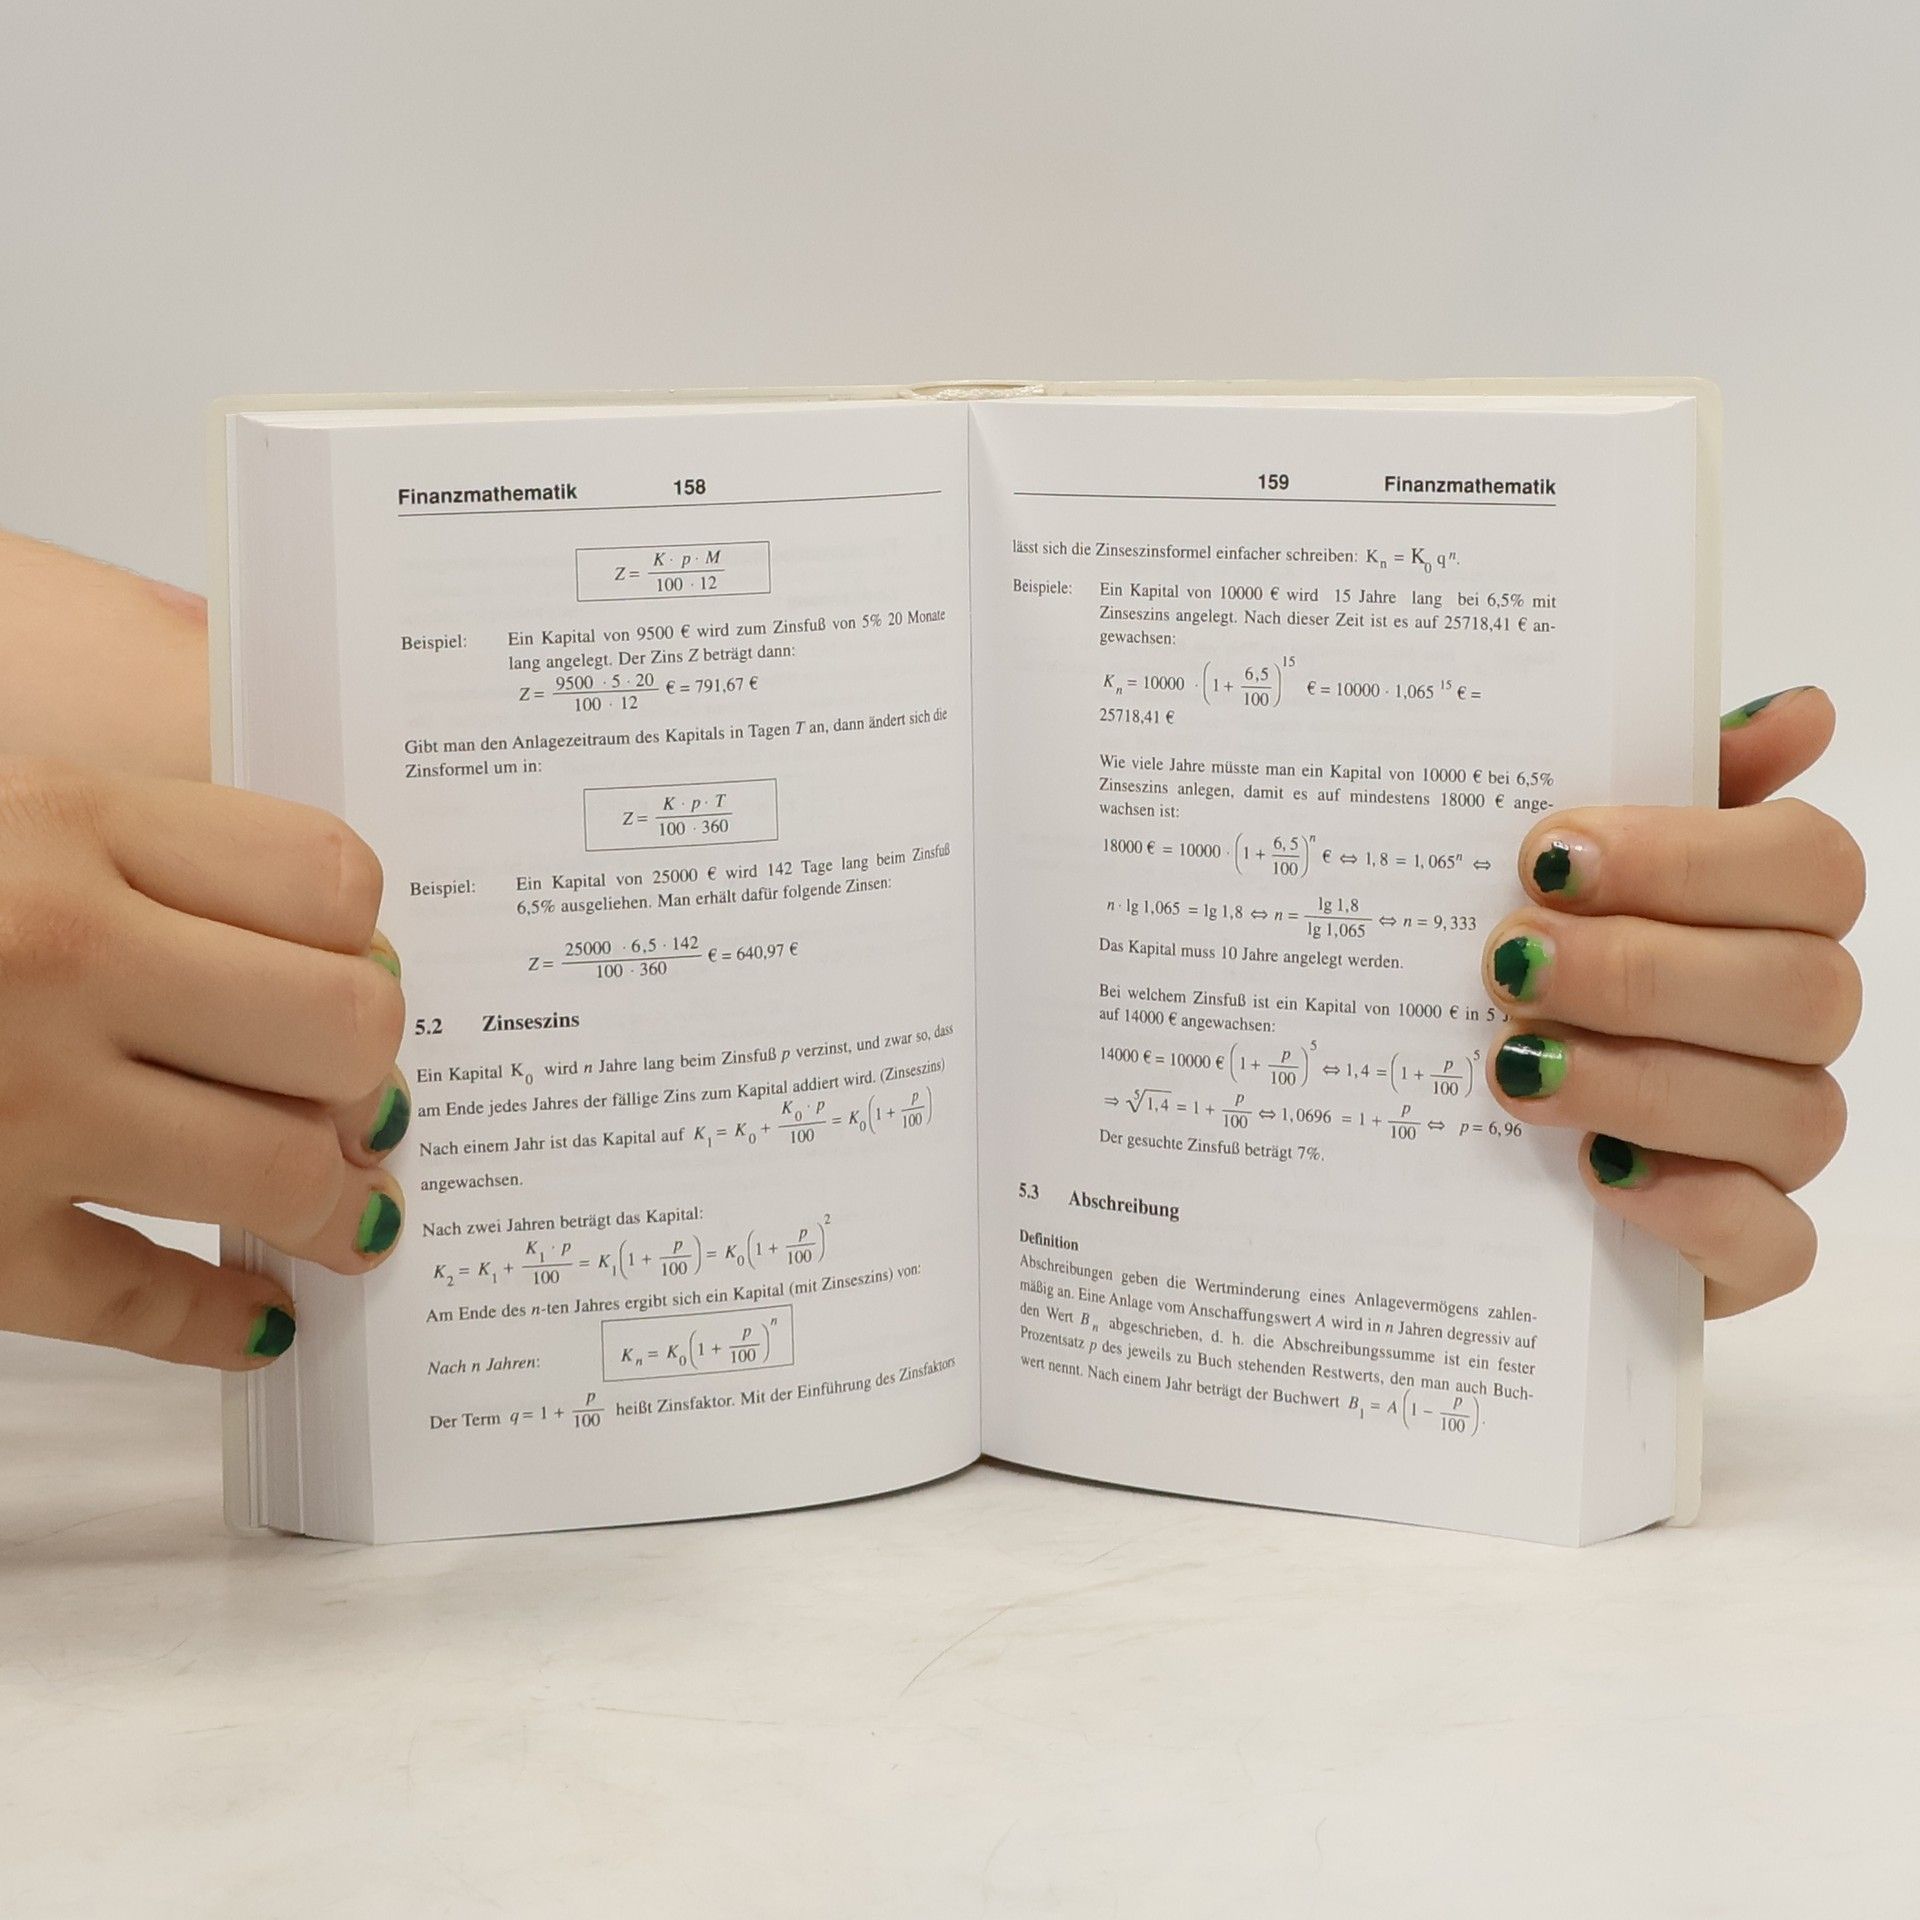 Finanzmathematik 158
Z = K · p · M / 100 · 12
Beispiel: Ein Kapital von 9500 € wird zum Zinsfuß von 5% 20 Monate
lang angelegt. Der Zins Z beträgt dann:
Z = 9500 · 5 · 20 / 100 · 12 € = 791,67 €
Gibt man den Anlagezeitraum des Kapitals in Tagen T an, dann ändert sich die
Zinsformel um in:
Z = K · p · T / 100 · 360
Beispiel: Ein Kapital von 25000 € wird 142 Tage lang beim Zinsfuß
6,5% ausgeliehen. Man erhält dafür folgende Zinsen:
Z = 25000 · 6,5 · 142 / 100 · 360 € = 640,97 €
5.2 Zinseszins
Ein Kapital K₀ wird n Jahre lang beim Zinsfuß p verzinst, und zwar so, dass
am Ende jedes Jahres der fällige Zins zum Kapital addiert wird. (Zinseszins)
Nach einem Jahr ist das Kapital auf K₁ = K₀ + K₀ · p / 100 = K₀(1 + p/100)
angewachsen.
Nach zwei Jahren beträgt das Kapital:
K₂ = K₁ + K₁ · p / 100 = K₁(1 + p/100) = K₀(1 + p/100)²
Am Ende des n-ten Jahres ergibt sich ein Kapital (mit Zinseszins) von:
Nach n Jahren: Kₙ = K₀(1 + p/100)ⁿ
Der Term q = 1 + p/100 heißt Zinsfaktor. Mit der Einführung des Zinsfaktors
159 Finanzmathematik
lässt sich die Zinseszinsformel einfacher schreiben: Kₙ = K₀ qⁿ.
Beispiele: Ein Kapital von 10000 € wird 15 Jahre lang bei 6,5% mit
Zinseszins angelegt. Nach dieser Zeit ist es auf 25718,41 € an-
gewachsen:
Kₙ = 10000 · (1 + 6,5/100)¹⁵ € = 10000 · 1,065¹⁵ € =
25718,41 €
Wie viele Jahre müsste man ein Kapital von 10000 € bei 6,5%
Zinseszins anlegen, damit es auf mindestens 18000 € ange-
wachsen ist:
18000 € = 10000 · (1 + 6,5/100)ⁿ € ⇔ 1,8 = 1,065ⁿ ⇔
n · lg 1,065 = lg 1,8 ⇔ n = lg 1,8 / lg 1,065 ⇔ n = 9,333
Das Kapital muss 10 Jahre angelegt werden.
Bei welchem Zinsfuß ist ein Kapital von 10000 € in 5
auf 14000 € angewachsen:
14000 € = 10000 € (1 + p/100)⁵ ⇔ 1,4 = (1 + p/100)⁵
⇒ ⁵√1,4 = 1 + p/100 ⇔ 1,0696 = 1 + p/100 ⇔ p = 6,96
Der gesuchte Zinsfuß beträgt 7%.
5.3 Abschreibung
Definition
Abschreibungen geben die Wertminderung eines Anlagevermögens zahlen-
mäßig an. Eine Anlage vom Anschaffungswert A wird in n Jahren degressiv auf
den Wert Bₙ abgeschrieben, d. h. die Abschreibungssumme ist ein fester
Prozentsatz p des jeweils zu Buch stehenden Restwerts, den man auch Buch-
wert nennt. Nach einem Jahr beträgt der Buchwert B₁ = A(1 − p/100).